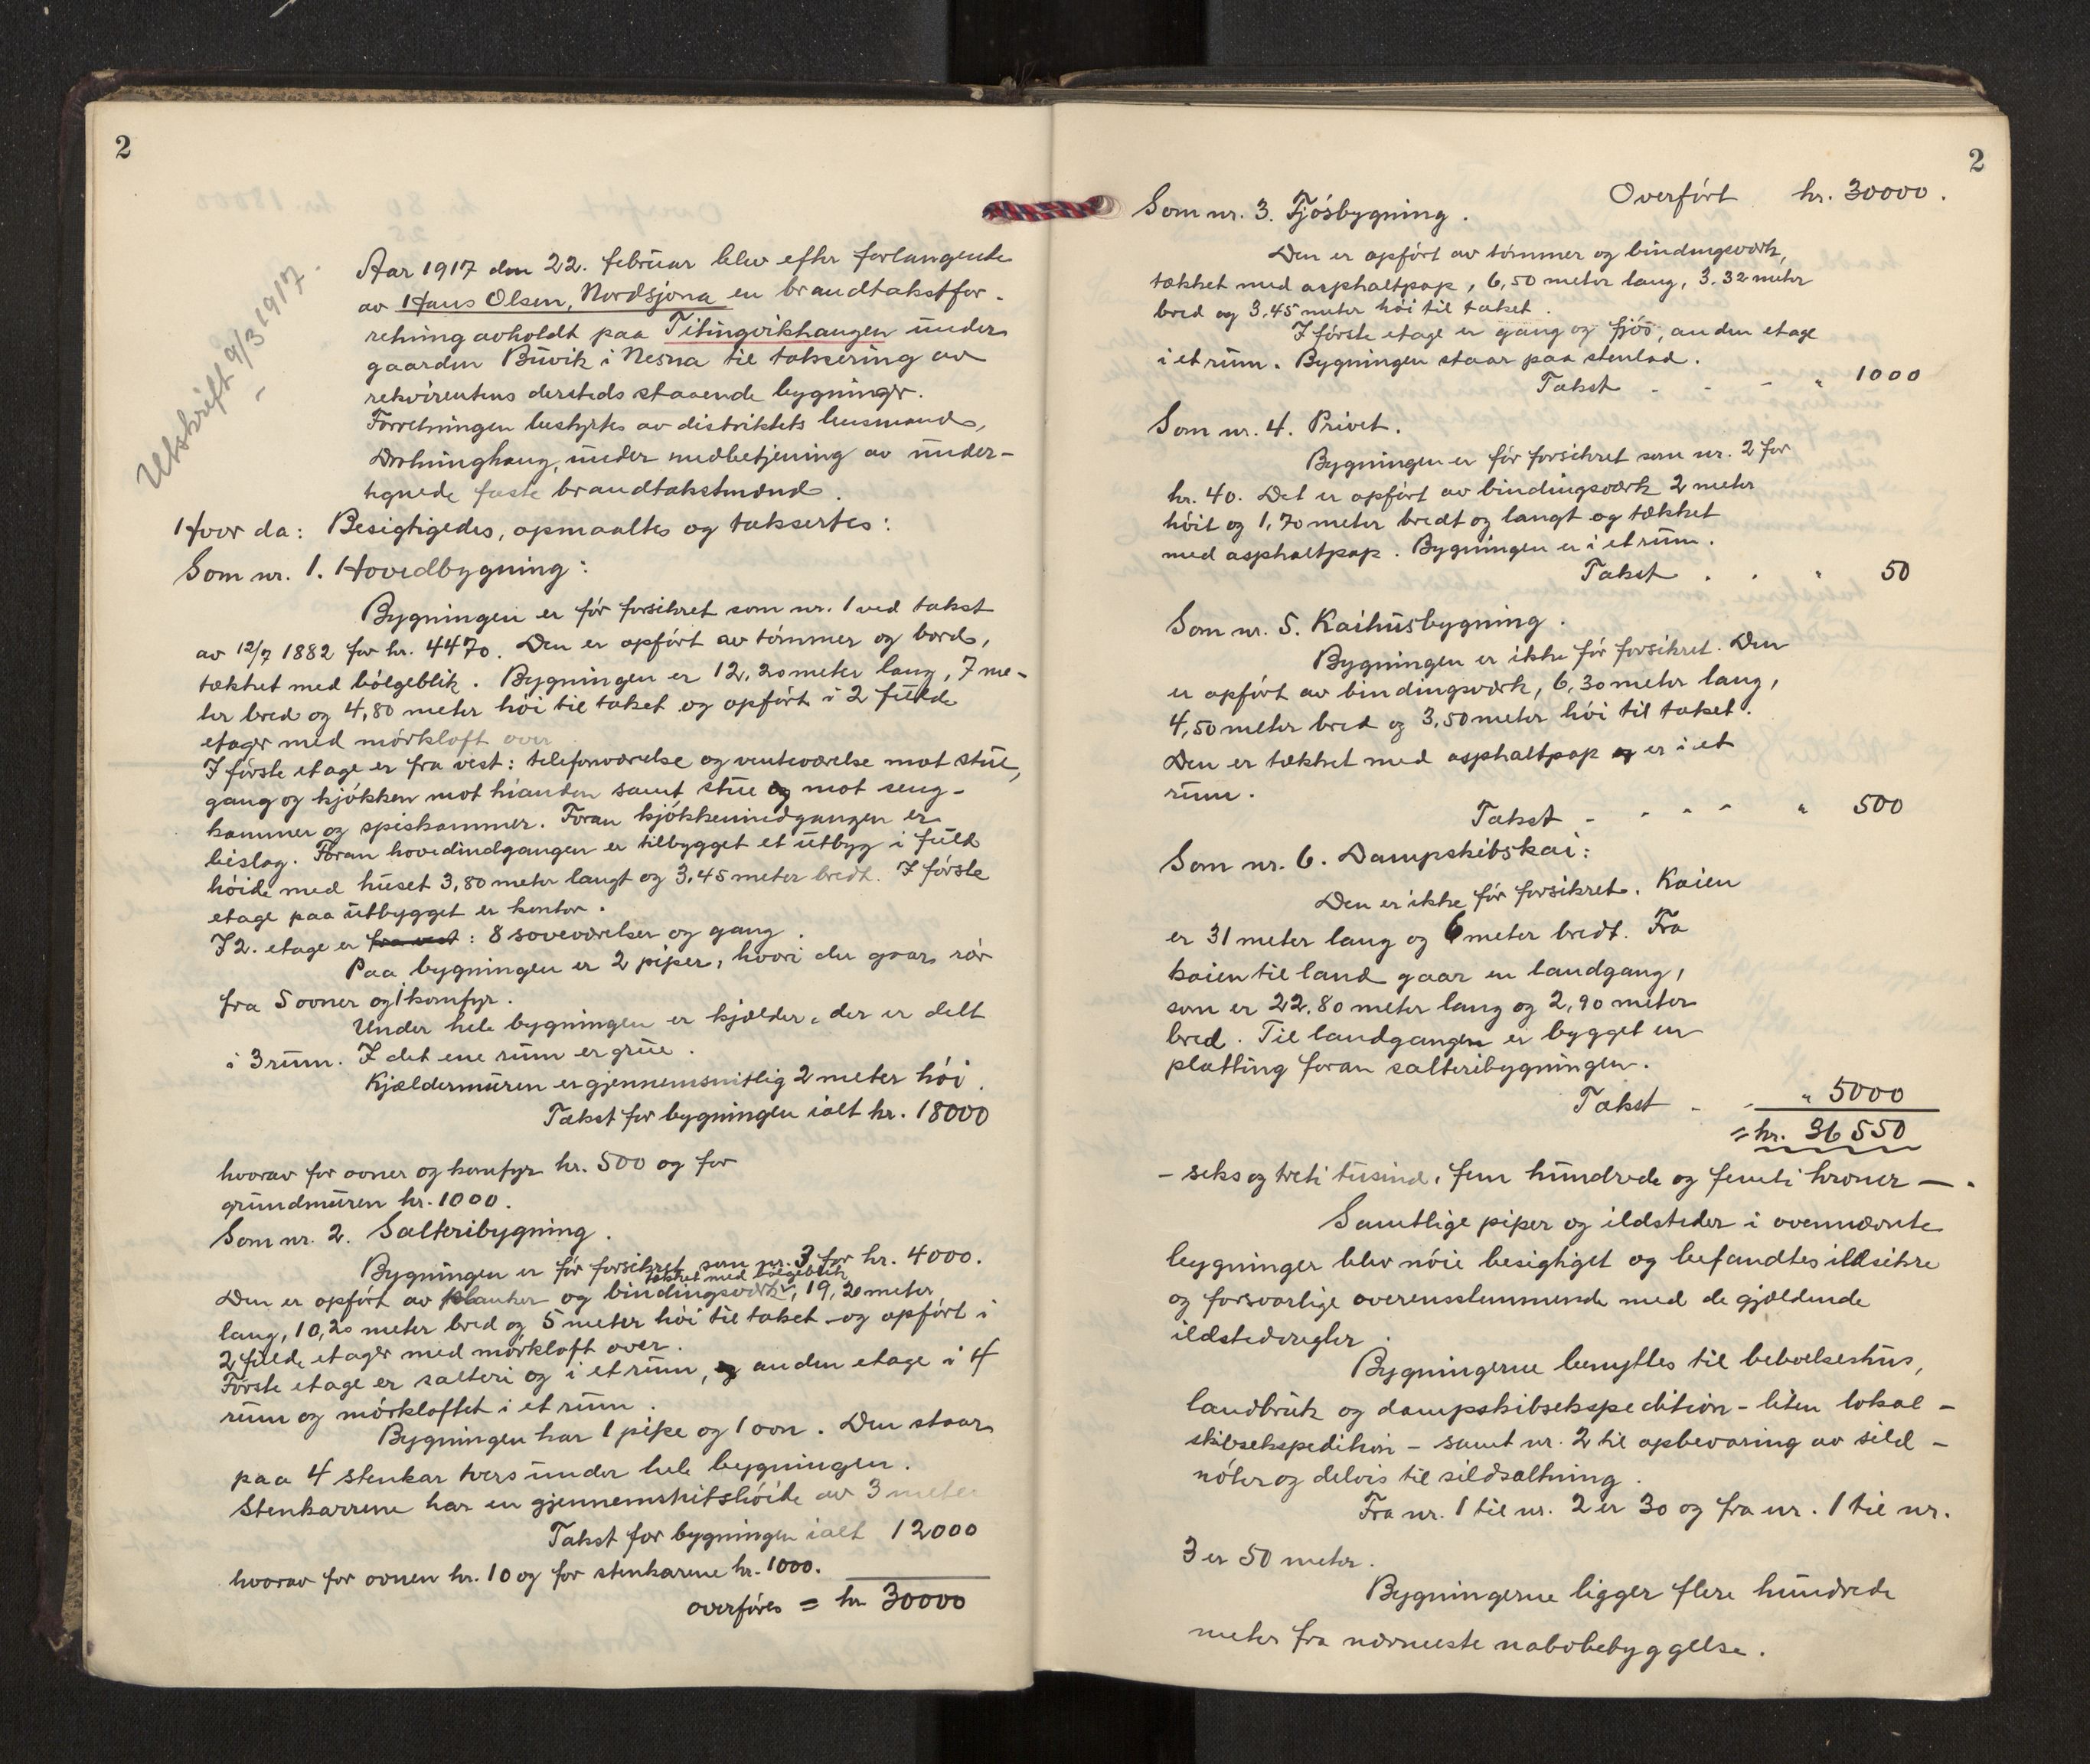 2
Utskrift 9/3 1917.
Aar 1917 den 22. februar blev efter forlangende
av Hans Olsen, Nordsjona en brandtakstfor-
retning avholdt paa Titingvikhaugen under
gaarden Buvik i Nesna til taksering av
rekvirentens dersteds staaende bygninger.
Forretningen bestyrtes av distriktets lensmand,
Drotninghaug, under medbetjening av under-
tegnede faste brandtakstmænd.
Hvor da: Besigtigedes, opmaaltes og taksertes:
Som nr. 1. Hovedbygning:
Bygningen er før forsikret som nr. 1 ved takst
av 12/7 1882 for kr. 4470. Den er opført av tømmer og bord,
tækket med bølgeblik. Bygningen er 12,20 meter lang, 7 me-
ter bred og 4,80 meter høi til taket og opført i 2 fulde
etager med mørkloft over
I første etage er fra vest: telefonværelse og venteværelse mot stue,
gang og kjøkken mot hinanden samt stue og mot seng-
kammer og spiskammer. Foran kjøkkenindgangen er
bislag. Foran hovedindgangen er tilbygget et utbyg i fuld
høide med huset 3,80 meter langt og 3,45 meter bredt. I første
etage paa utbygget er kontor.
I 2. etage er fra vest: 8 soveværelser og gang.
Paa bygningen er 2 piper, hvori der gaar rør
fra 5 ovner og 1 komfyr.
Under hele bygningen er kjælder, der er delt
i 3 rum. I det ene rum er grue.
Kjældermuren er gjennemsnitlig 2 meter høi.
Takst for bygningen ialt kr. 18000
hvorav for ovner og komfyr kr. 500 og for
grundmuren kr. 1000.
Som nr. 2. Salteribygning.
Bygningen er før forsikret som nr. 3 for kr. 4000.
tækket med bølgeblik
Den er opført av planker og bindingsverk, 19,20 meter
lang, 10,20 meter bred og 5 meter høi til taket og opført i
2 fulde etager med mørkloft over.
Første etage er salteri og i et rum, og anden etage i 4
rum og mørkloftet i et rum.
Bygningen har 1 pipe og 1 ovn. Den staar
paa 4 stenkar tvers under hele bygningen.
Stenkarrene har en gjennemsnitshøide av 3 meter
Takst for bygningen ialt 12000
hvorav for ovnen kr. 10 og for stenkarene kr. 1000.
overføres = kr 30000
2
Overført kr. 30000.
Som nr. 3. Fjøsbygning.
Den er opført av tømmer og bindingsverk,
tækket med asphaltpap, 6,50 meter lang, 3.32 meter
bred og 3,45 meter høi til taket.
I første etage er gang og fjøs, anden etage
i et rum. Bygningen staar paa stenlad.
Takst - - - " 1000
Som nr. 4. Privet.
Bygningen er før forsikret som nr. 2 for
kr. 40. Det er opført av bindingsværk 2 meter
høit og 1,70 meter bredt og langt og tækket
med asphaltpap. Bygningen er i et rum.
Takst . . " 50
Som nr. 5. Kaihusbygning.
Bygningen er ikke før forsikret. Den
er opført av bindingsværk, 6,30 meter lang,
4,50 meter bred og 3,50 meter høi til taket.
Den er tækket med asphaltpap og er i et
rum.
Takst - - - - " 500
Som nr. 6. Dampskibskai:
Den er ikke før forsikret. Kaien
er 31 meter lang og 6 meter bredt. Fra
kaien til land gaar en landgang,
som er 22,80 meter lang og 2,90 meter
bred. Til landgangen er bygget en
platting foran salteribygningen.
Takst - - " 5000
= kr. 36550
- seks og treti tusind, fem hundrede og femti kroner -.
Samtlige piper og ildsteder i ovennævnte
bygninger blev nøie besigtiget og befandtes ildsikre
og forsvarlige overensstemmende med de gjældende
ildstedsregler.
Bygningerne benyttes til beboelseshus,
landbruk og dampskibsekspedition - liten lokal-
skibsekspedition - samt nr. 2 til opbevaring av sild-
nøter og delvis til sildsaltning.
Fra nr. 1 til nr. 2 er 30 og fra nr. 1 til nr.
3 er 50 meter.
Bygningerne ligger flere hundrede
meter fra nærmeste nabobebyggelse.